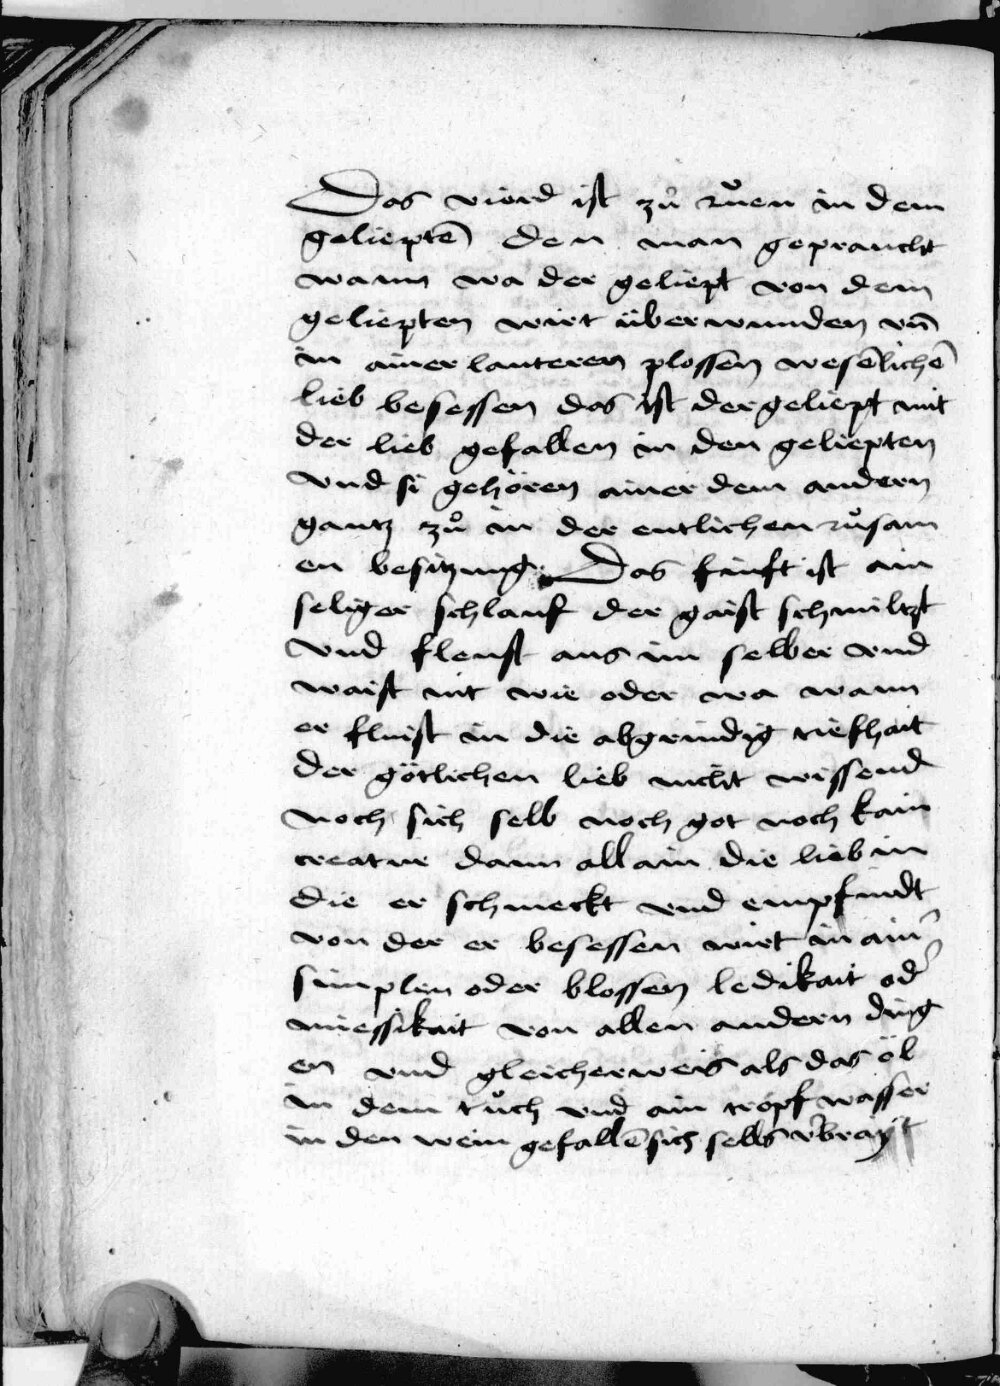 Das vierd ist zů růen in dem
gelieptē den man gepraucht
wann wa der geliept von dem
geliepten wirt überwunden vn̄
in ainer lauteren plossen wesēlichē
lieb besessen das ist der geliept mit
der lieb gefallen in den geliepten
vnd si gehören ainer dem andern
gantz zů in der entlichen růsam
en besitzung Das finft ist ain
seliger schlauf der gaist schmiltzt
vnd fleust aus im selber vnd
waist nit wie oder wa wann
er fluist in die abgrindig tiefhait
der götlichen lieb nicht wissend
noch sich selb noch got noch kain
creatur dann allain die lieb in
die er schmeckt vnd empfindt
von der er besessen wirt in ain̄
simplen oder blossen ledikait od̄
miessikait von allen andern ding
en vnd gleicherweis als das öl
in dem tůch vnd ain tropf wasser
in den wein gefallē sich selbs v̄brayt